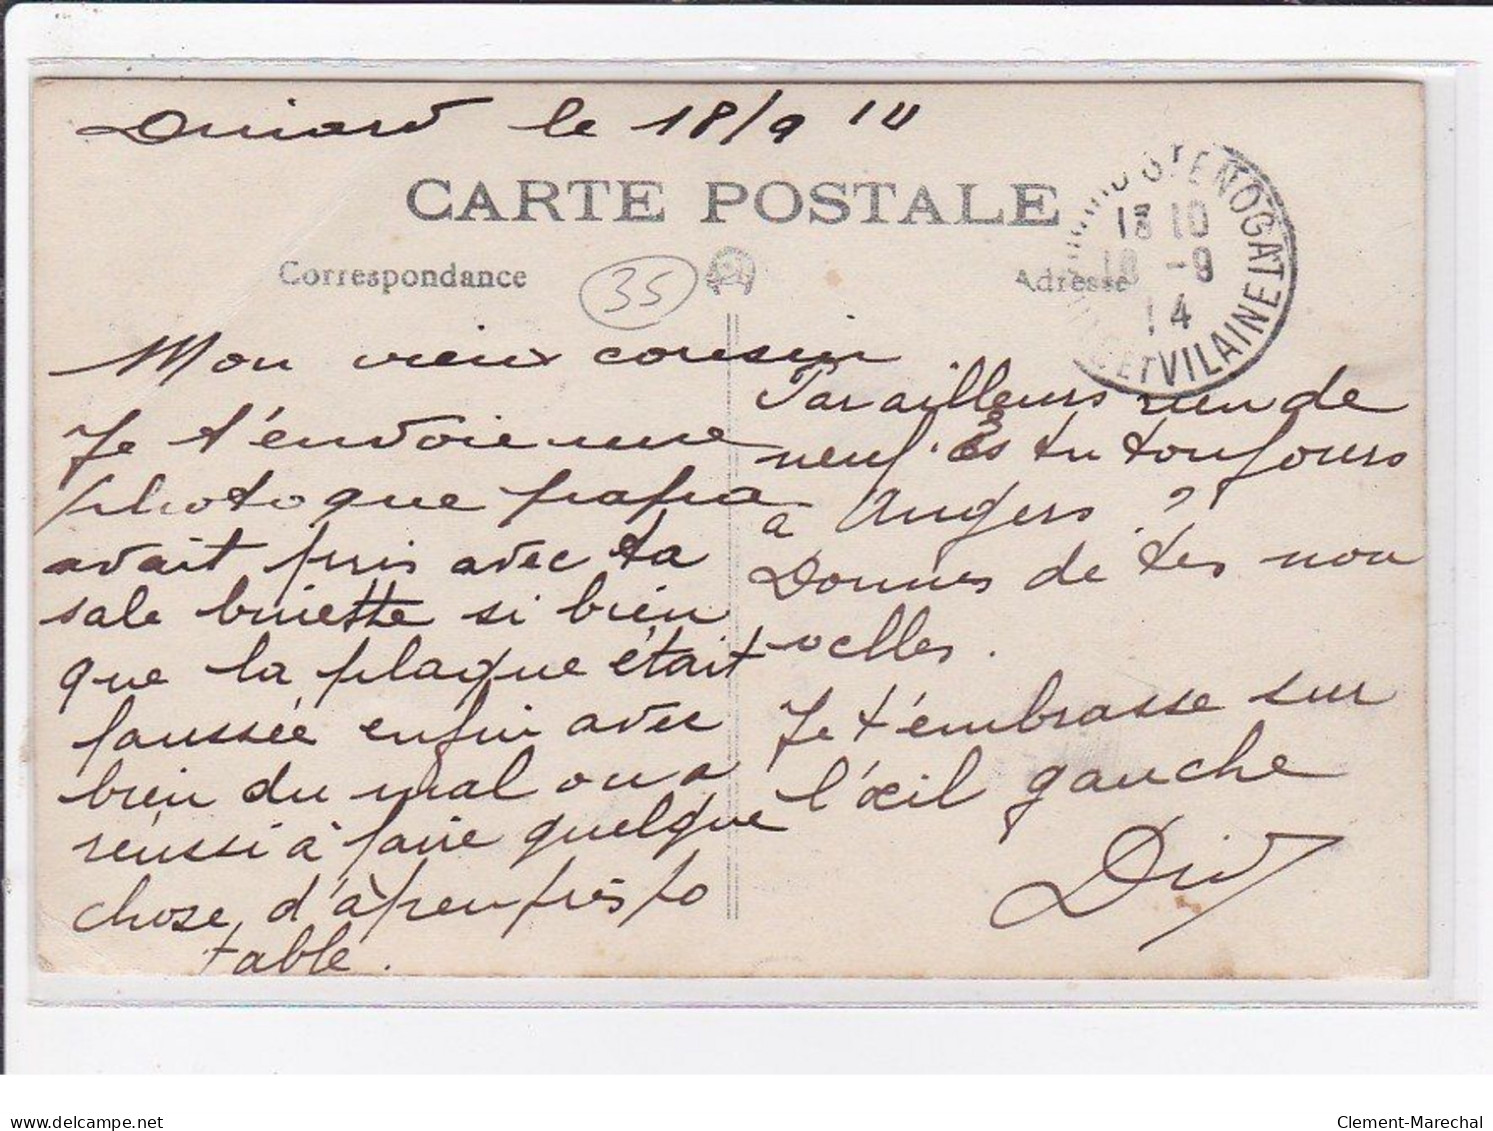 Dinard le 18/9 14
CARTE POSTALE
Correspondance
35
Adresse
STENOGATE
13 10
18 -9
14
ET VILAINE
Mon vieux cousin
Je t'envoie une
photo que papa
avait pris avec ta
sale binette si bien
que la plaque était
faussée enfin avec
bien du mal on a
réussi à faire quelque
chose d'à peu près po
table.
Par ailleurs rien de
neuf. Es tu toujours
à Angers ?
Donnes de tes nou
velles.
Je t'embrasse sur
l'œil gauche
delcampe.net
Clement-Marechal